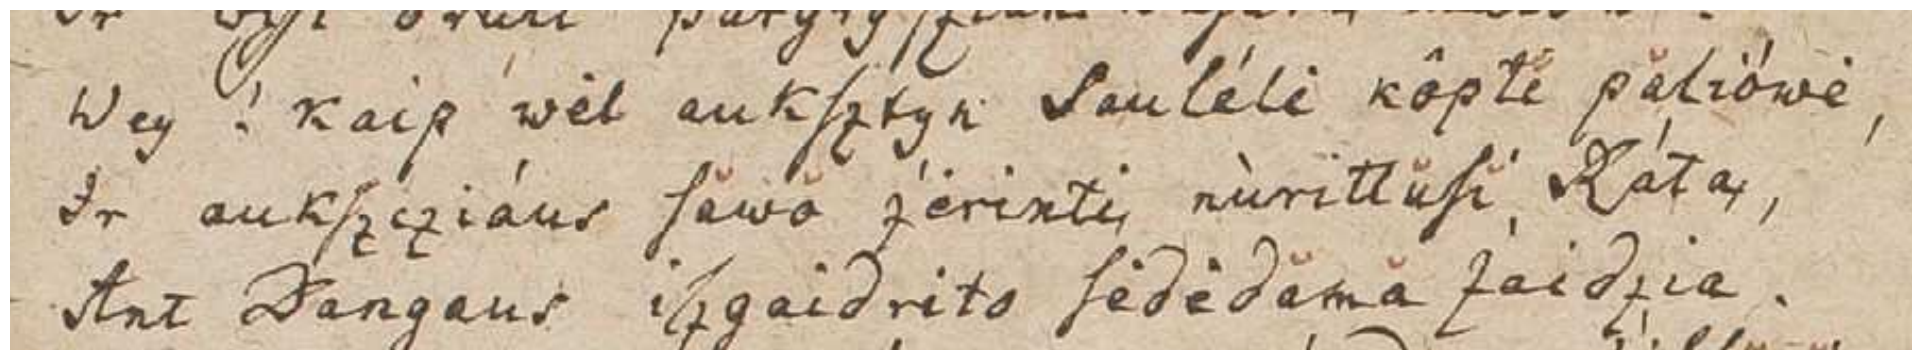 Wey! kaip wėl aukſztyn Saulélė kôptĕ pălióvė,
Ir aukſzcziáus ſăwŏ żėrintį nùrittŭſi Rátą,
Ant Dangaus iſzgaidrito ſėdėdămă żaidzia.